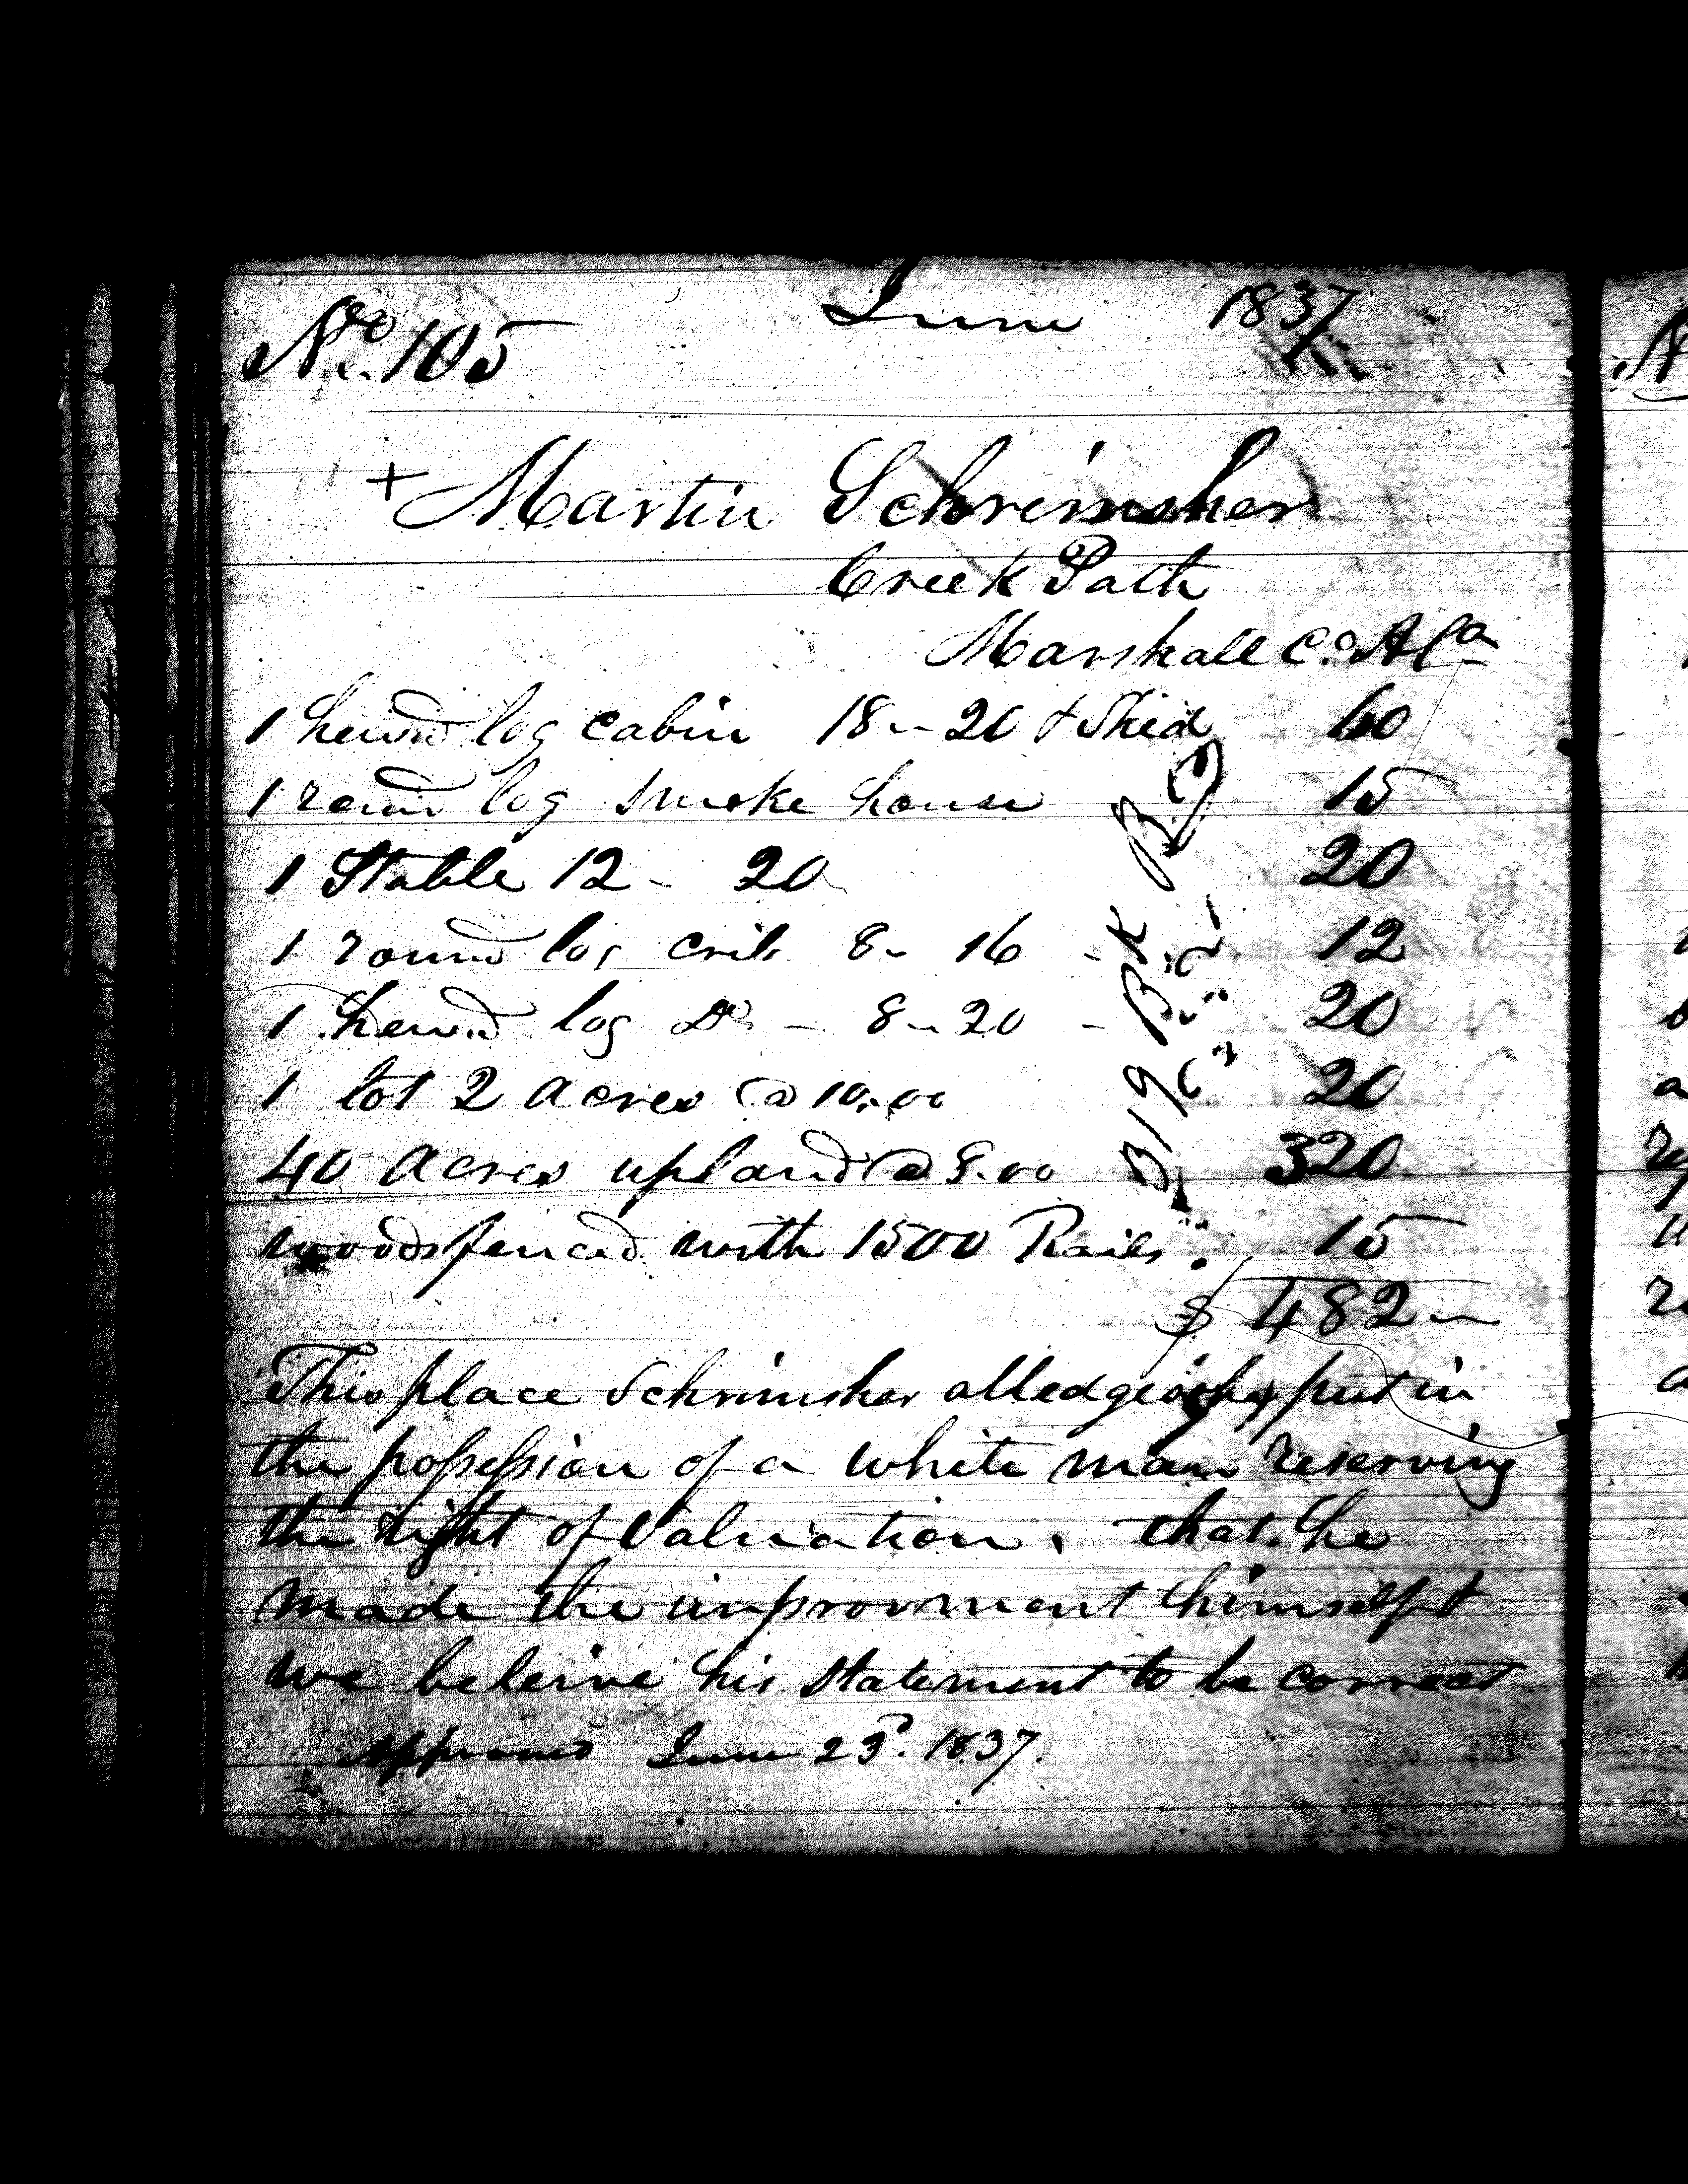 June 1837
No. 105
+ Martin Schrimsher
Creek Path
Marshall Co. Ala
1 hewd log cabin 18 - 20 & Shed 60
1 round log smoke house 15
1 Stable 12 - 20 20
1 round log crib 8 - 16 - 12
1 hewd log Do - 8 - 20 - 20
1 lot 2 acres @ 10.00 20
40 acres upland @ 8.00 320
woods fenced with 1500 Rails 15
$ 482
This place Schrimsher alledges he put in
the possession of a white man reserving
the right of Valuation. that he
made the improvment himself &
we beleive his statement to be correct
Approved June 23d. 1837.